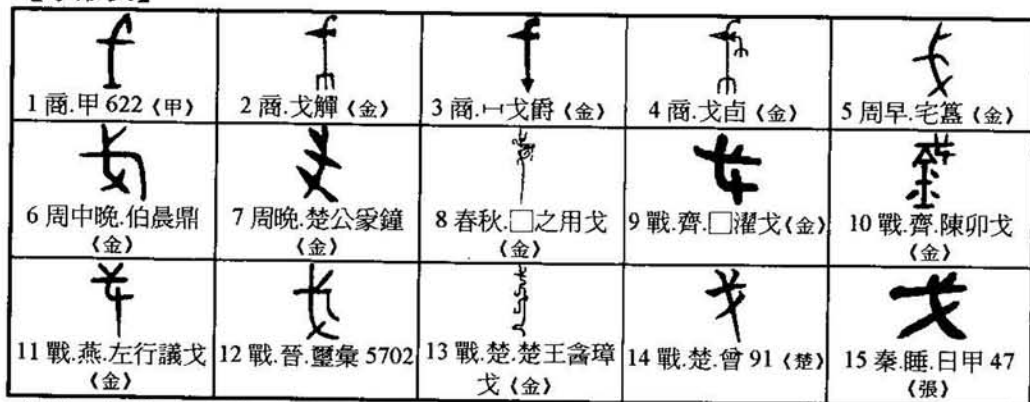 1 商.甲 622《甲》
2 商.戈觶《金》
3 商.𠙴戈爵《金》
4 商.戈卣《金》
5 周早.宅簋《金》
6 周中晚.伯晨鼎
《金》
7 周晚.楚公豪鐘
《金》
8 春秋.□之用戈
《金》
9 戰.齊.□濯戈《金》
10 戰.齊.陳卯戈
《金》
11 戰.燕.左行議戈
《金》
12 戰.晉.璽彙 5702
13 戰.楚.楚王酓璋
戈《金》
14 戰.楚.曾 91《楚》
15 秦.睡.日甲 47
《張》